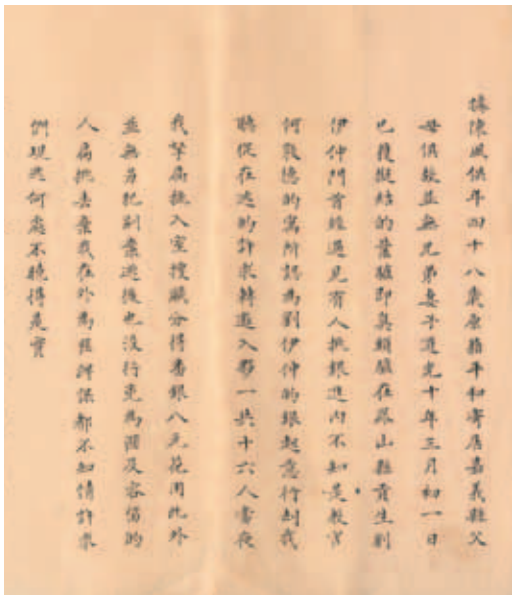 據陳威供年四十八歲原籍平和寄居嘉義縣父
母俱故並無兄弟妻子道光十年三月初一日
已獲擬結的葉驢即臭頭驢在鳳山縣貢生劉
伊仲門首經過見有人挑銀進內不知是教官
何敦德的寓所認為劉伊仲的銀起意行刦我
聽從在逃的許求轉邀入夥一共十六人當夜
我拏扁挑入室搜贓分得番銀八元花用此外
並無另犯別案逃後也沒行兇為匪及容留的
人扁挑丟棄我在外為匪牌保都不知情許求
們現逃何處不曉得是實